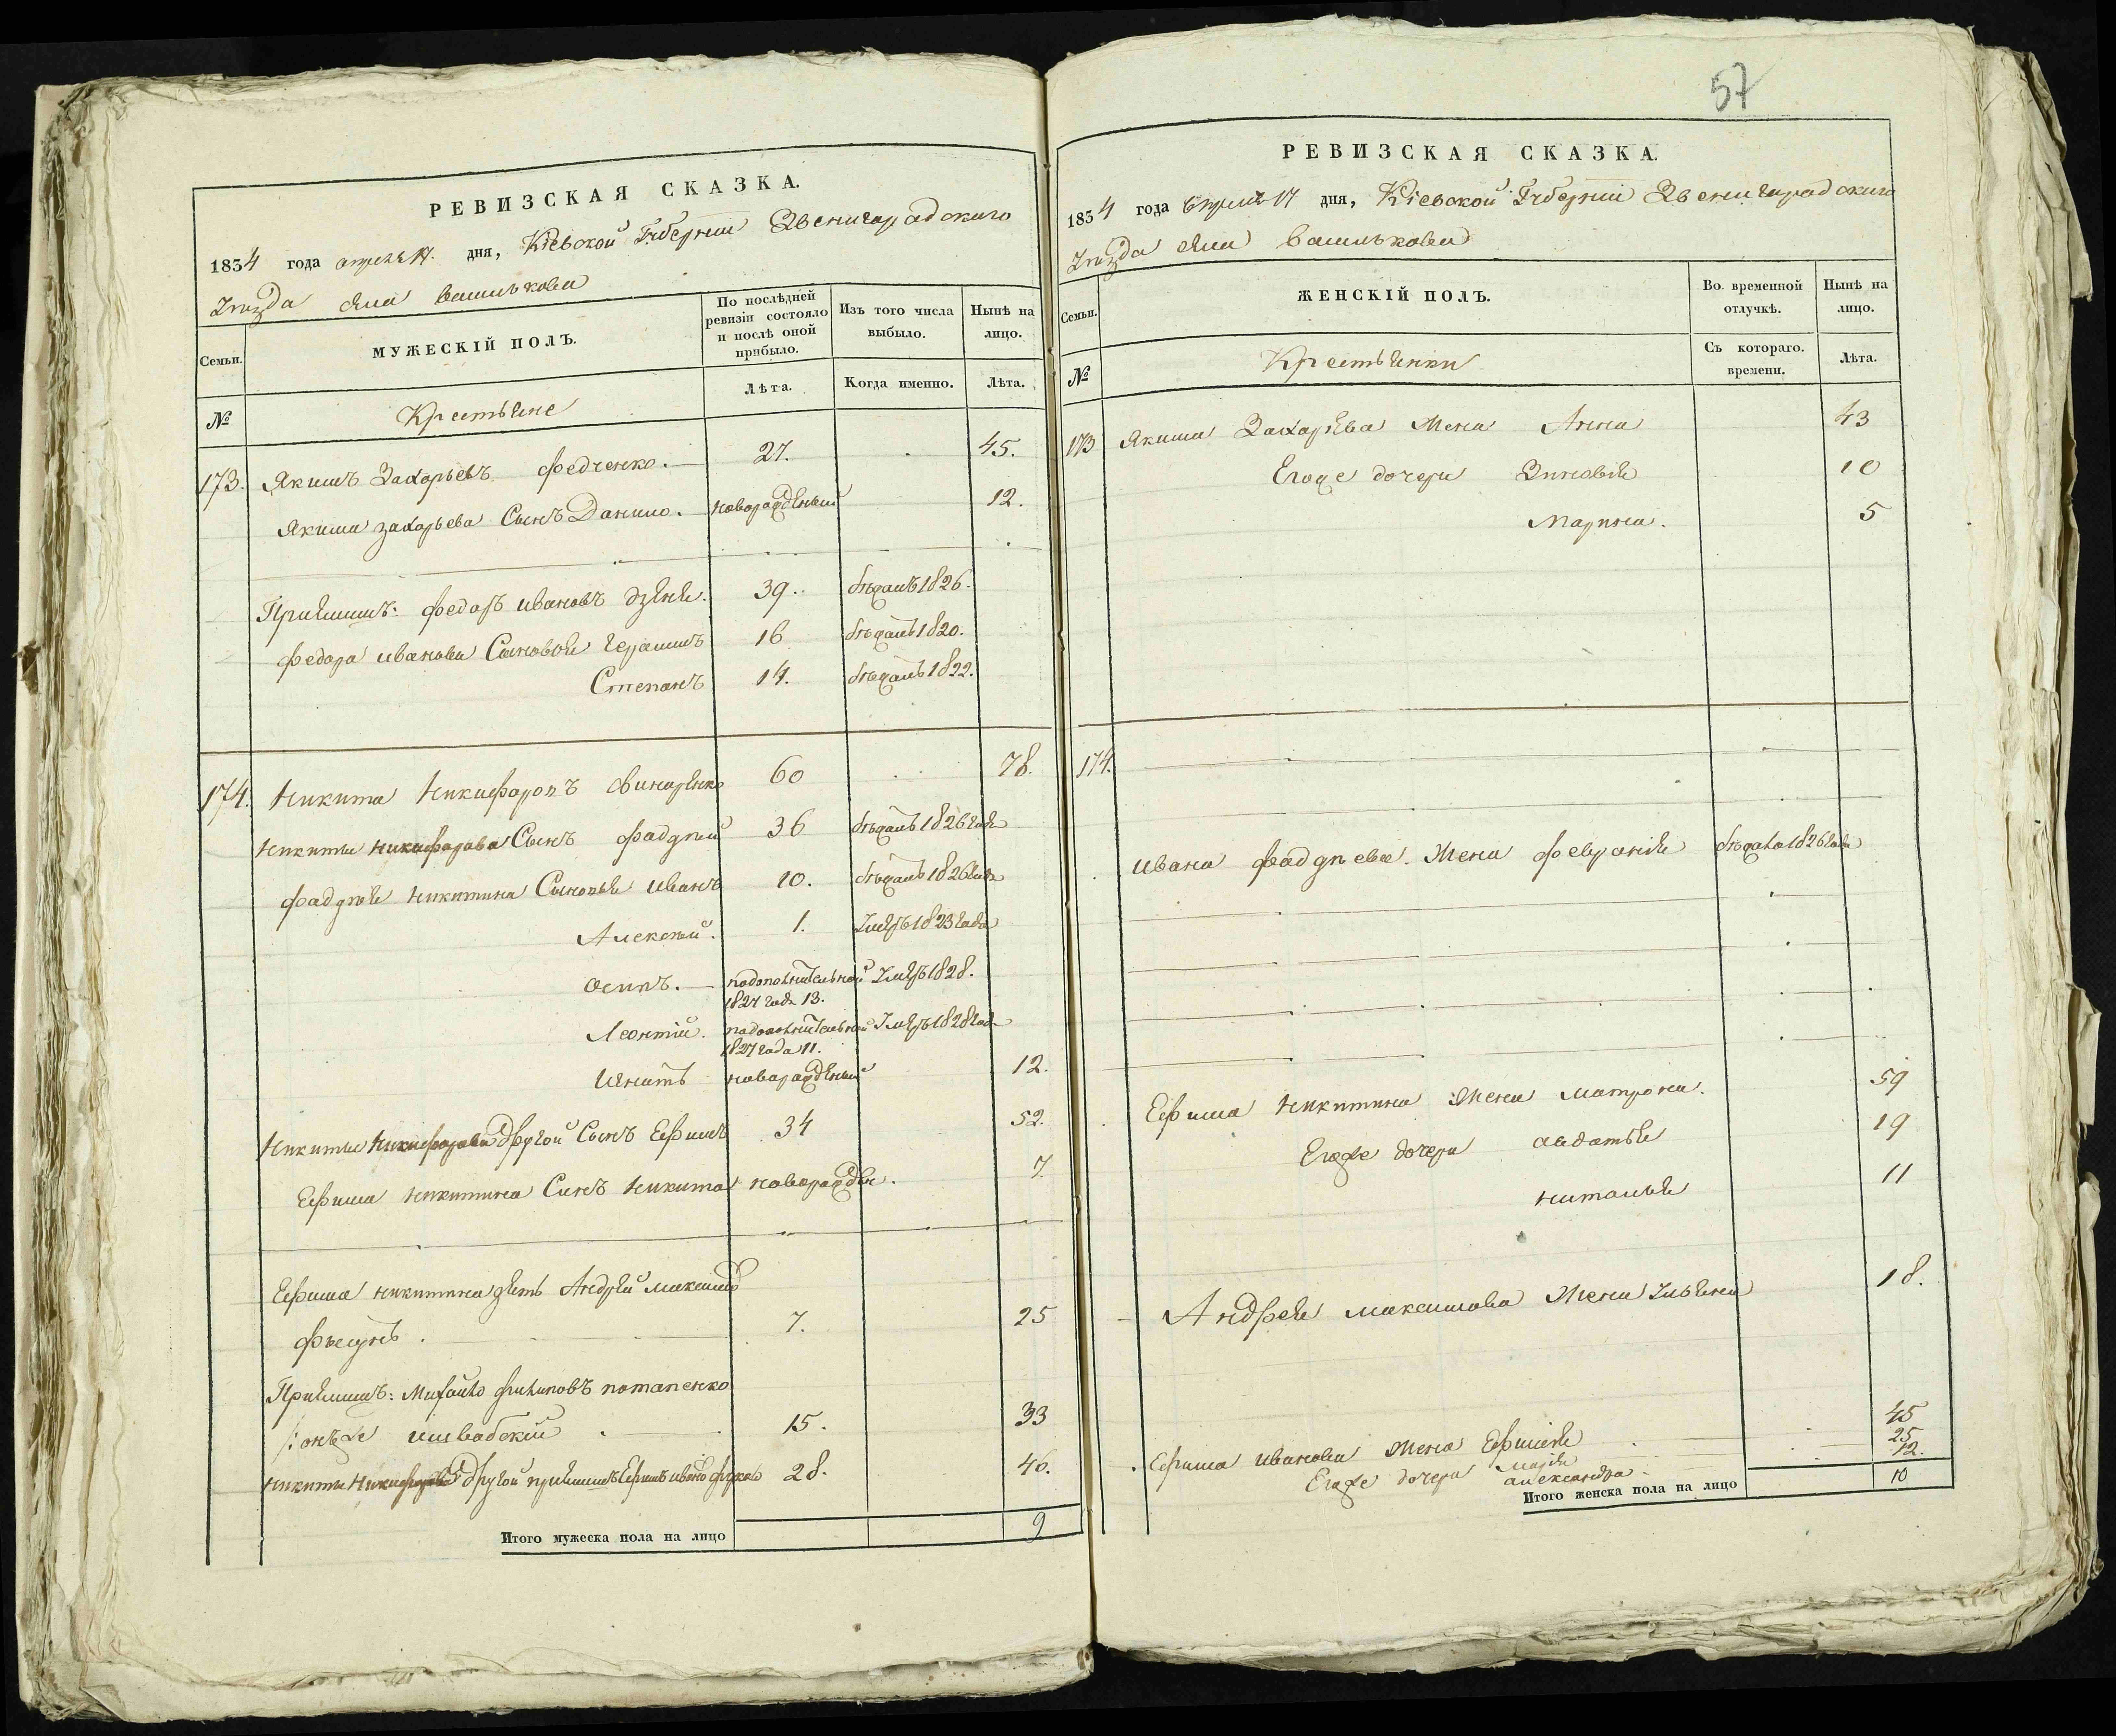 57
РЕВИЗСКАЯ СКАЗКА.
1834 года апреля 17. дня, Кіевской Губерніи Звенигарадскаго
Уезда Села Василькова
Семьи.
МУЖЕСКІЙ ПОЛЪ.
По послѣдней ревизіи состояло и послѣ оной прибыло.
Изъ того числа выбыло.
Нынѣ на лицо.
№
Крестьяне
Лѣта.
Когда именно.
Лѣта.
173. Якимъ Захарьевъ Федченко. 27. 45.
Якима захарьева Сынъ Данило. новорожденый 12.
Приимышъ: Федоръ ивановъ 39. бѣжалъ 1826.
Федора иванова Сыновья Герасимъ 16 бѣжалъ 1820.
Степанъ 14. бѣжалъ 1822.
174. Никита Никифоровъ Винаренко 60 78.
Никиты Никифорова Сынъ Фаддѣй 36 бѣжалъ 1826 года
Фаддѣя Никитина Сыновья иванъ 10. бѣжалъ 1826 года
Алексѣй. 1. Умеръ 1823 года
Осипъ. подополнительной Умеръ 1828.
1827 года 13.
Леонтій. подополнительной Умеръ 1828 года
1827 года 11.
Игнатъ новорожденый 12.
Никиты Никифорова Другой Сынъ Ефимъ 34 52.
Ефима Никитина Сынъ Никита новорожден. 7.
Ефима Никитина зять Андрей максимовъ
7. 25
Приимышъ: Михайло Филиповъ потапенко
онъже 15. 33
Никиты Никифорова другой приимышъ Ефимъ 28. 46.
Итого мужеска пола на лицо 9
РЕВИЗСКАЯ СКАЗКА.
1834 года Апреля 17 дня, Кіевской Губерніи Звенигарадскаго
Уезда Села Василькова
Семьи.
ЖЕНСКІЙ ПОЛЪ.
Во временной отлучкѣ.
Нынѣ на лицо.
№
Крестьянки
Съ котораго. времени.
Лѣта.
173 Якима Захарьева Жена Анна 43
Егоже дочери Зиновія 10
Марина. 5
174.
ивана Фаддѣева. Жена Февронія бѣжала 1826 года
Ефима Никитина Жена матрона. 59
Егоже дочери авдотья 19
наталья 11
Андрея максимова Жена Ульяна 18.
Ефима иванова Жена Ефимія 45
Егоже дочери Марія 25
александра. 12.
Итого женска пола на лицо 10